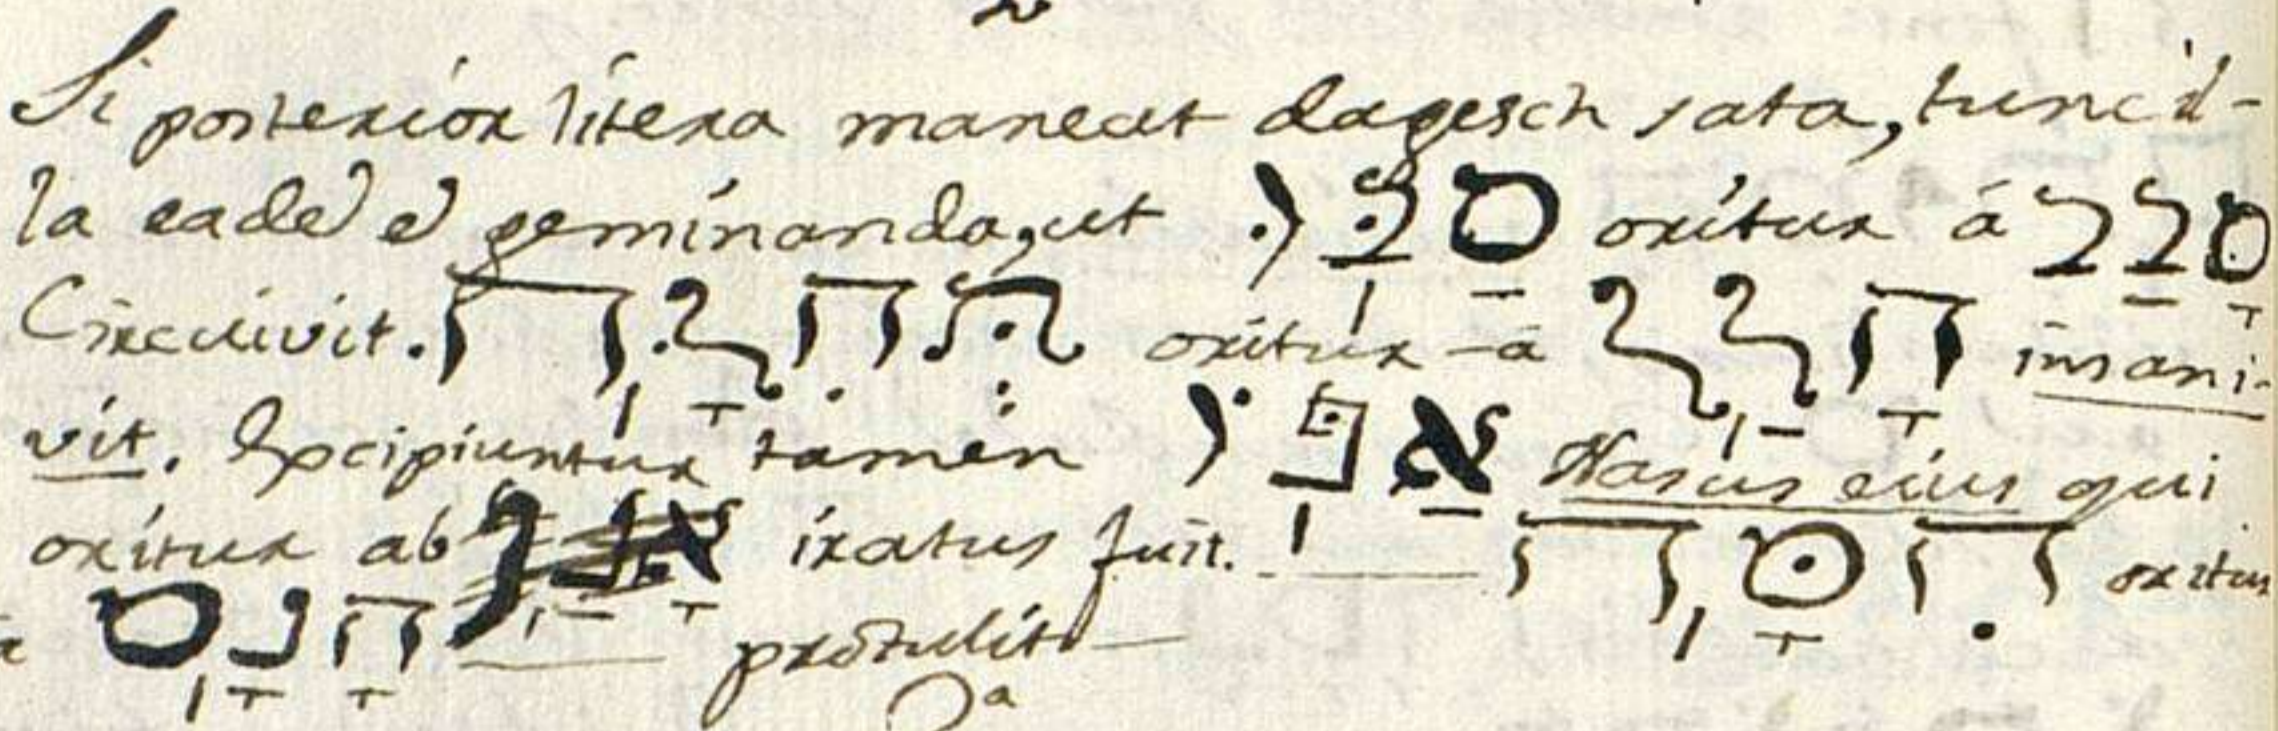 Si posterior litera maneat dagesch sata, tunc il-
la eadē ē geminanda, ut סַבּוּ oritur á סָבַב
Circuivit. תְּהִלָּה oritur á הָלַל insani-
vit. Excipiuntur tamen אַפּוֹ Nasus eius qui
oritur ab אָנַף iratus fuit. הִסָּה oritur
הָנָס protulit
2ª